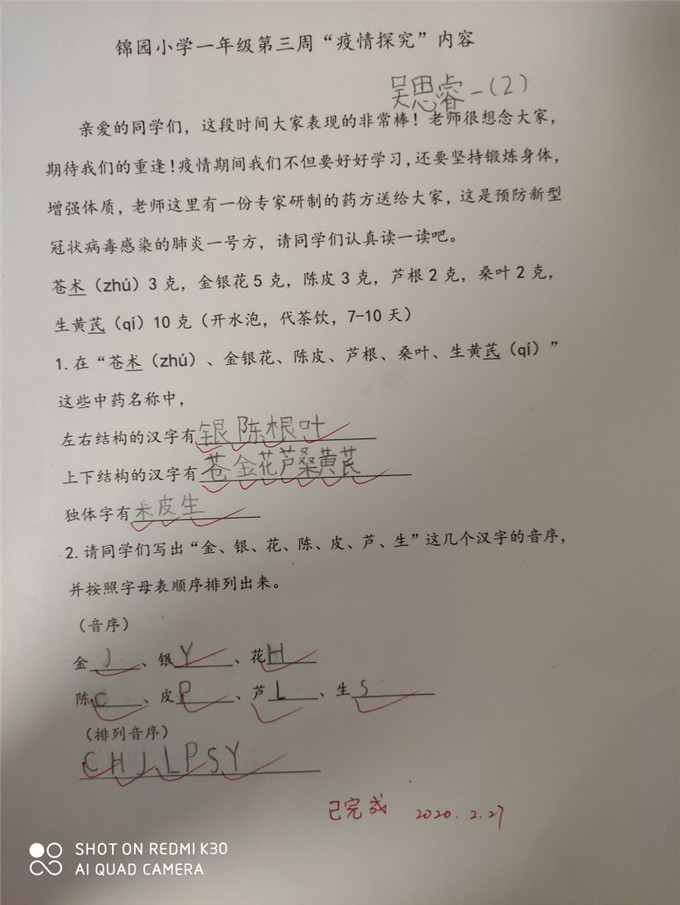 锦园小学一年级第三周“疫情探究”内容
吴思睿一(2)
亲爱的同学们，这段时间大家表现的非常棒！老师很想念大家，
期待我们的重逢！疫情期间我们不但要好好学习，还要坚持锻炼身体，
增强体质，老师这里有一份专家研制的药方送给大家，这是预防新型
冠状病毒感染的肺炎一号方，请同学们认真读一读吧。
苍术（zhú）3 克，金银花 5 克，陈皮 3 克，芦根 2 克，桑叶 2 克，
生黄芪（qí）10 克（开水泡，代茶饮，7-10 天）
1. 在“苍术（zhú）、金银花、陈皮、芦根、桑叶、生黄芪（qí）”
这些中药名称中，
左右结构的汉字有银陈根叶
上下结构的汉字有苍金花芦桑黄芪
独体字有术皮生
2. 请同学们写出“金、银、花、陈、皮、芦、生”这几个汉字的音序，
并按照字母表顺序排列出来。
（音序）
金J、银Y、花H
陈C、皮P、芦L、生S
（排列音序）
CHJLPSY
已完成 2020.2.27
SHOT ON REDMI K30
AI QUAD CAMERA